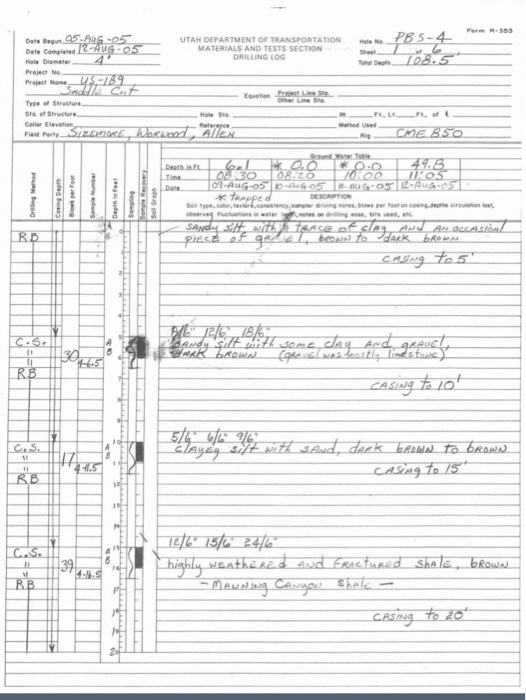 Form R-353
Date Begun 05-AUG-05 UTAH DEPARTMENT OF TRANSPORTATION Hole No. PBS-4
Date Completed 12-AUG-05 MATERIALS AND TESTS SECTION Sheet 1 of 6
Hole Diameter 4" DRILLING LOG Total Depth 108.5'
Project No.
Project Name US-189
Saddle Cut Equation Project Line Sta.
Other Line Sta.
Type of Structure
Sta. of Structure Hole Sta. Ft. Lt. Ft. of ℄
Collar Elevation Reference Method Used
Field Party SIZEMORE, WORWOOD, ALLEN Rig CME 850
Ground Water Table
Depth in Ft. 6.1 * 0.0 * 0.0 49.8
Time 08:30 08:20 10:00 11:05
Date 09-AUG-05 10-AUG-05 11-AUG-05 12-AUG-05
* trapped DESCRIPTION
Drilling Method Casing Depth Blows per Foot Sample Number Depth in Feet Sampling Sample Recovery Soil Graph
Soil type, color, texture, consistency, sampler driving notes, blows per foot on casing, depths circulation lost,
observed fluctuations in water level, notes on drilling ease, bits used, etc.
RB 0 SANDY silt with A TRACE of clay AND AN occasional
piece of gravel, brown to dark brown
1
CASING to 5'
2
3
4
5 A 8/6" 12/6" 18/6"
C.S. 30 B SANDY silt with some clay AND gravel,
" 4-6.5 6 DARK brown (gravel was mostly limestone)
RB
7
CASING to 10'
8
9
10 A 5/6" 6/6" 9/6"
C.S. 17 B clayey silt with SAND, dark brown to brown
" 4-11.5 11 CASING to 15'
RB
12
13
14
15 A 12/6" 15/6" 24/6"
C.S. 39 B highly weathered AND FRACTURED shale, brown
" 4-16.5 16
RB - MANNING CANYON Shale -
17
18 CASING to 20'
19
20